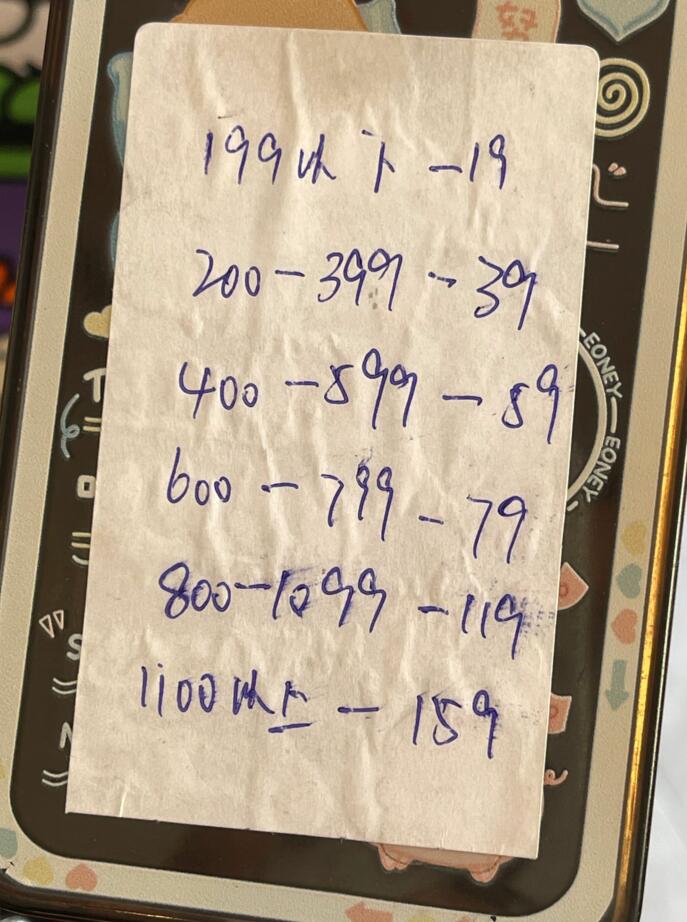 好
199以下 - 19
200 - 399 - 39
400 - 599 - 59
EONEY
EONEY
600 - 799 - 79
800 - 1099 - 119
1100以上 - 159